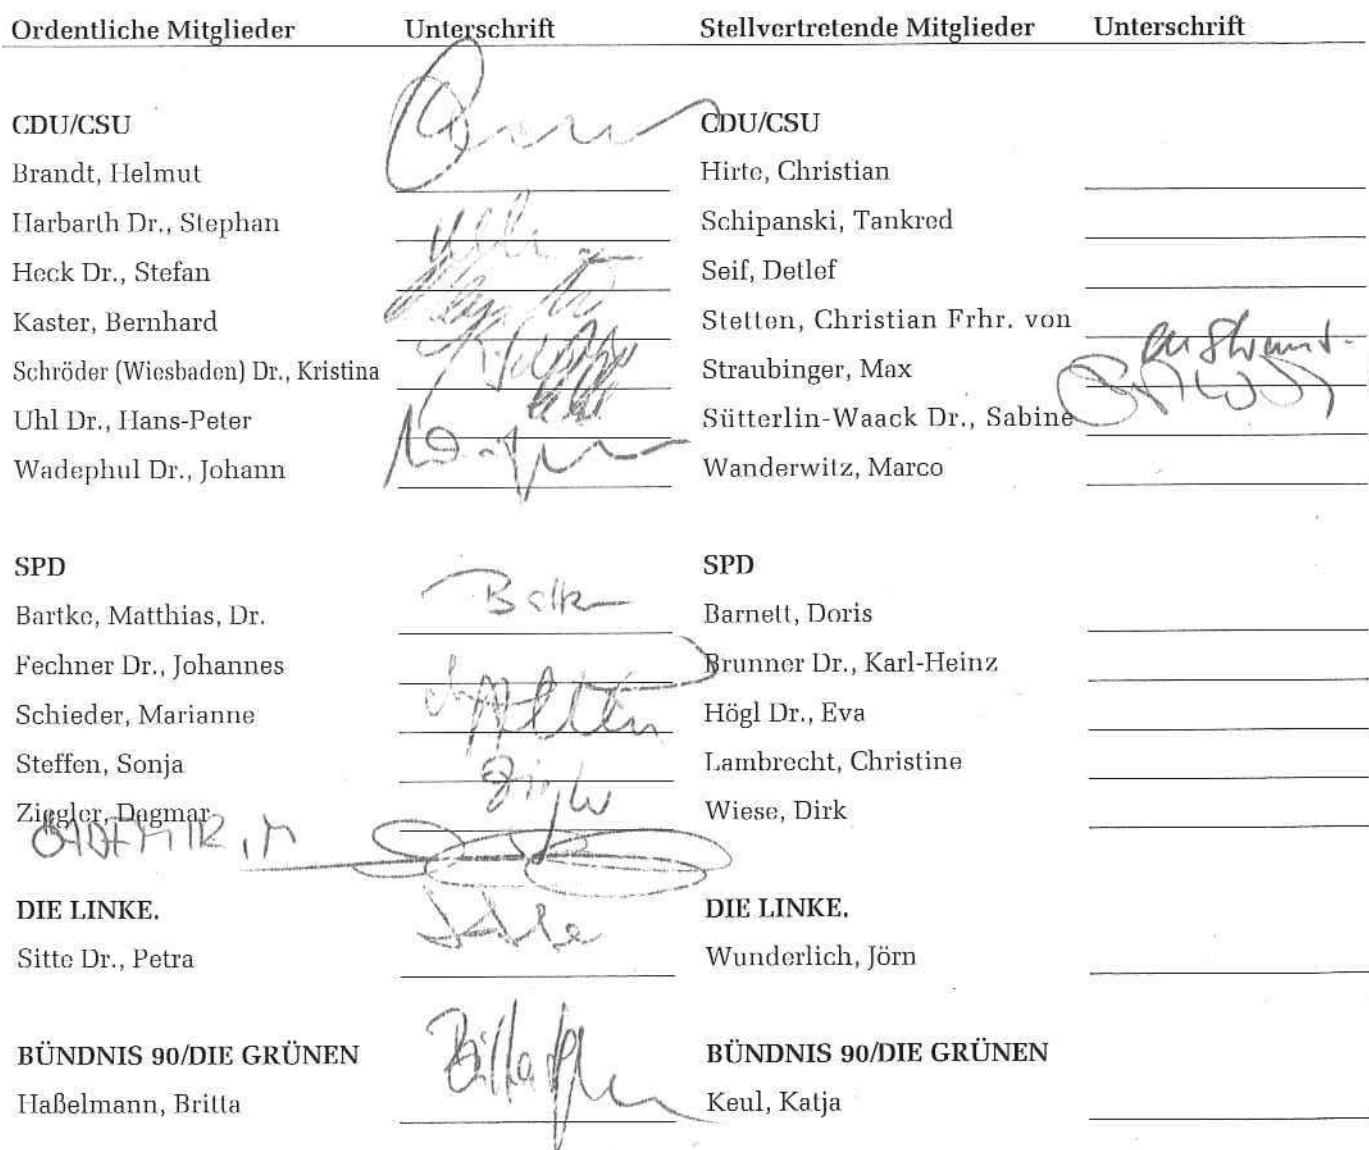 Ordentliche Mitglieder Unterschrift Stellvertretende Mitglieder Unterschrift
CDU/CSU CDU/CSU
Brandt, Helmut Hirte, Christian
Harbarth Dr., Stephan Schipanski, Tankred
Heck Dr., Stefan Seif, Detlef
Kaster, Bernhard Stetten, Christian Frhr. von
Schröder (Wiesbaden) Dr., Kristina Straubinger, Max
Uhl Dr., Hans-Peter Sütterlin-Waack Dr., Sabine
Wadephul Dr., Johann Wanderwitz, Marco
SPD SPD
Bartke, Matthias, Dr. Barnett, Doris
Fechner Dr., Johannes Brunner Dr., Karl-Heinz
Schieder, Marianne Högl Dr., Eva
Steffen, Sonja Lambrecht, Christine
Ziegler, Dagmar Wiese, Dirk
DIE LINKE. DIE LINKE.
Sitte Dr., Petra Wunderlich, Jörn
BÜNDNIS 90/DIE GRÜNEN BÜNDNIS 90/DIE GRÜNEN
Haßelmann, Britta Keul, Katja